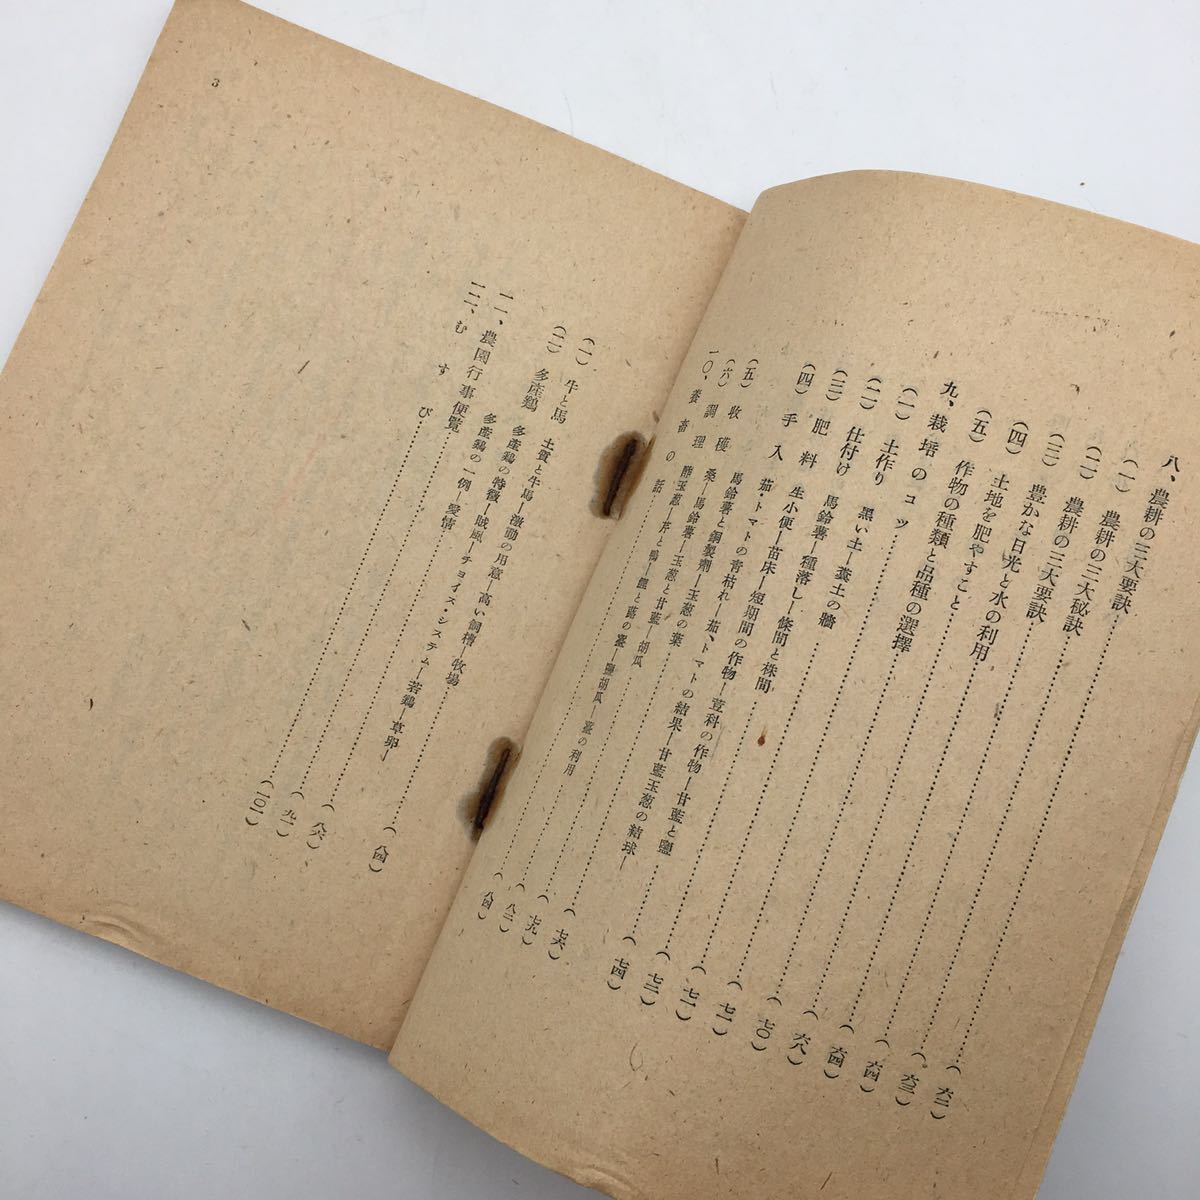 八、農耕の三大要訣
(一) 農耕の三大秘訣
(二) 農耕の三大要訣
(三) 豊かな日光と水の利用
(四) 土地を肥やすこと
(五) 作物の種類と品種の選擇
九、栽培のコツ
(一) 土作り 黒い土―糞土の牆
(二) 仕付け 馬鈴薯―種落し―條間と株間
(三) 肥料 生小便―苗床―短期間の作物―荳科の作物―甘藍と鹽
(四) 手入 茄・トマトの青枯れ―茄、トマトの結果―甘藍玉葱の結球―
馬鈴薯と銅製劑
(五) 收穫 桑―馬鈴薯―玉葱の葉
(六) 調理 酢玉葱―芹と鴨
一〇、養畜の話
(一) 牛と馬 土質と牛馬―激動の用意―高い飼槽―牧場
(二) 多産鷄 多産鷄の特徴―賊風―チョイス・システム―若鷄―草卵―
多産鷄の一例―愛情
一一、農園行事便覧
一二、むすび
(六二)
(六三)
(六四)
(六四)
(六八)
(七〇)
(七一)
(七二)
(七四)
(七六)
(七九)
(八二)
(八四)
(八四)
(八六)
(九一)
(一〇一)
3